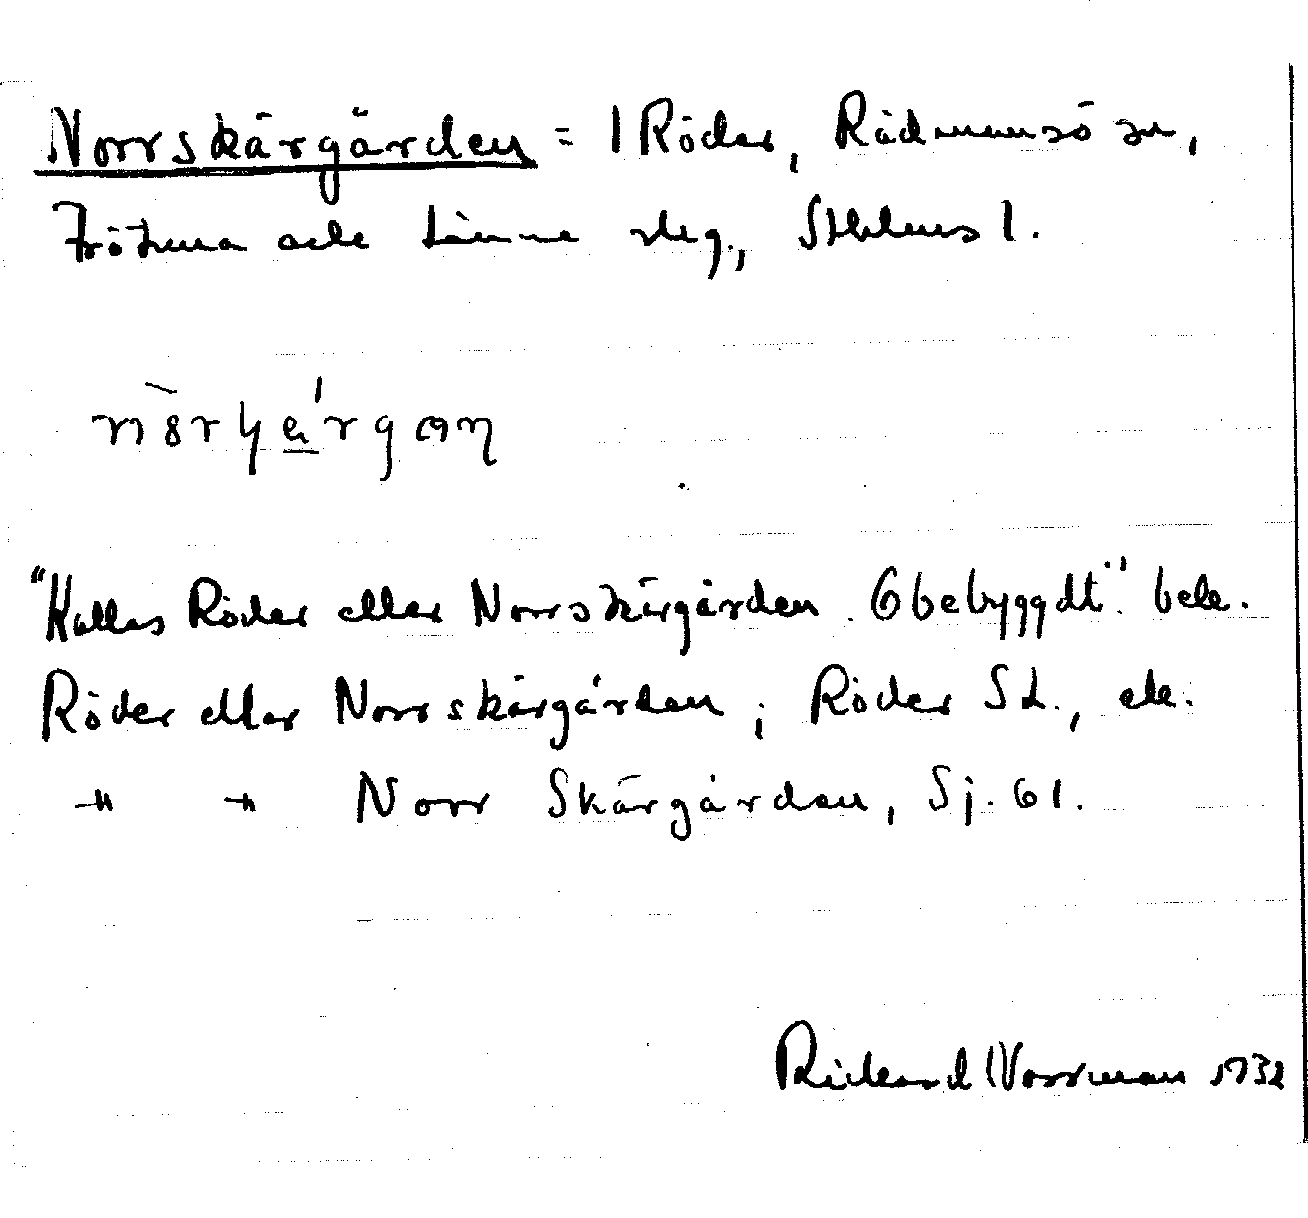 Norrskärgården = 1 Röder, Rådmansö sn,
Frötuna och Länna skg., Sthlms l.
"Kallas Röder eller Norrskärgården. Obebyggdt." beb.
Röder eller Norrskärgården; Röder SL., ek.
-"- -"- Norr Skärgården, Sj. 61.
Rickard Norrman 1932